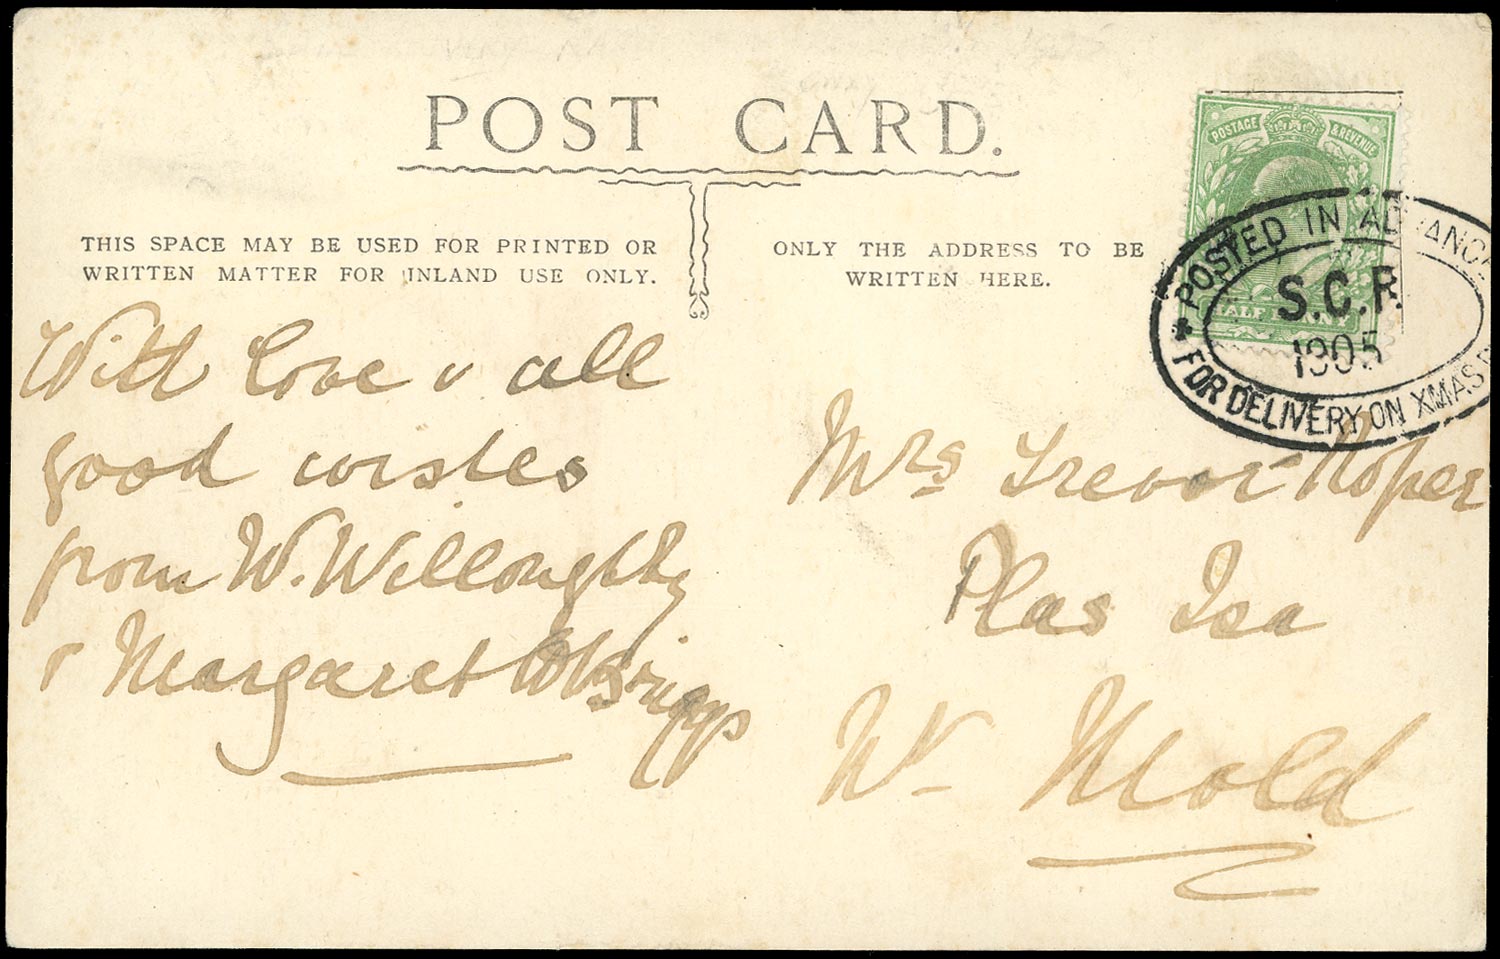 POST CARD.
THIS SPACE MAY BE USED FOR PRINTED OR
WRITTEN MATTER FOR INLAND USE ONLY.
ONLY THE ADDRESS TO BE
WRITTEN HERE.
POSTAGE & REVENUE
HALF PENNY
POSTED IN ADVANCE
S.C.R.
1905
FOR DELIVERY ON XMAS
With love & all
good wishes
from W. Willoughby
& Margaret Briggs
Mrs Trevor-Roper
Plas Isa
Nr Mold